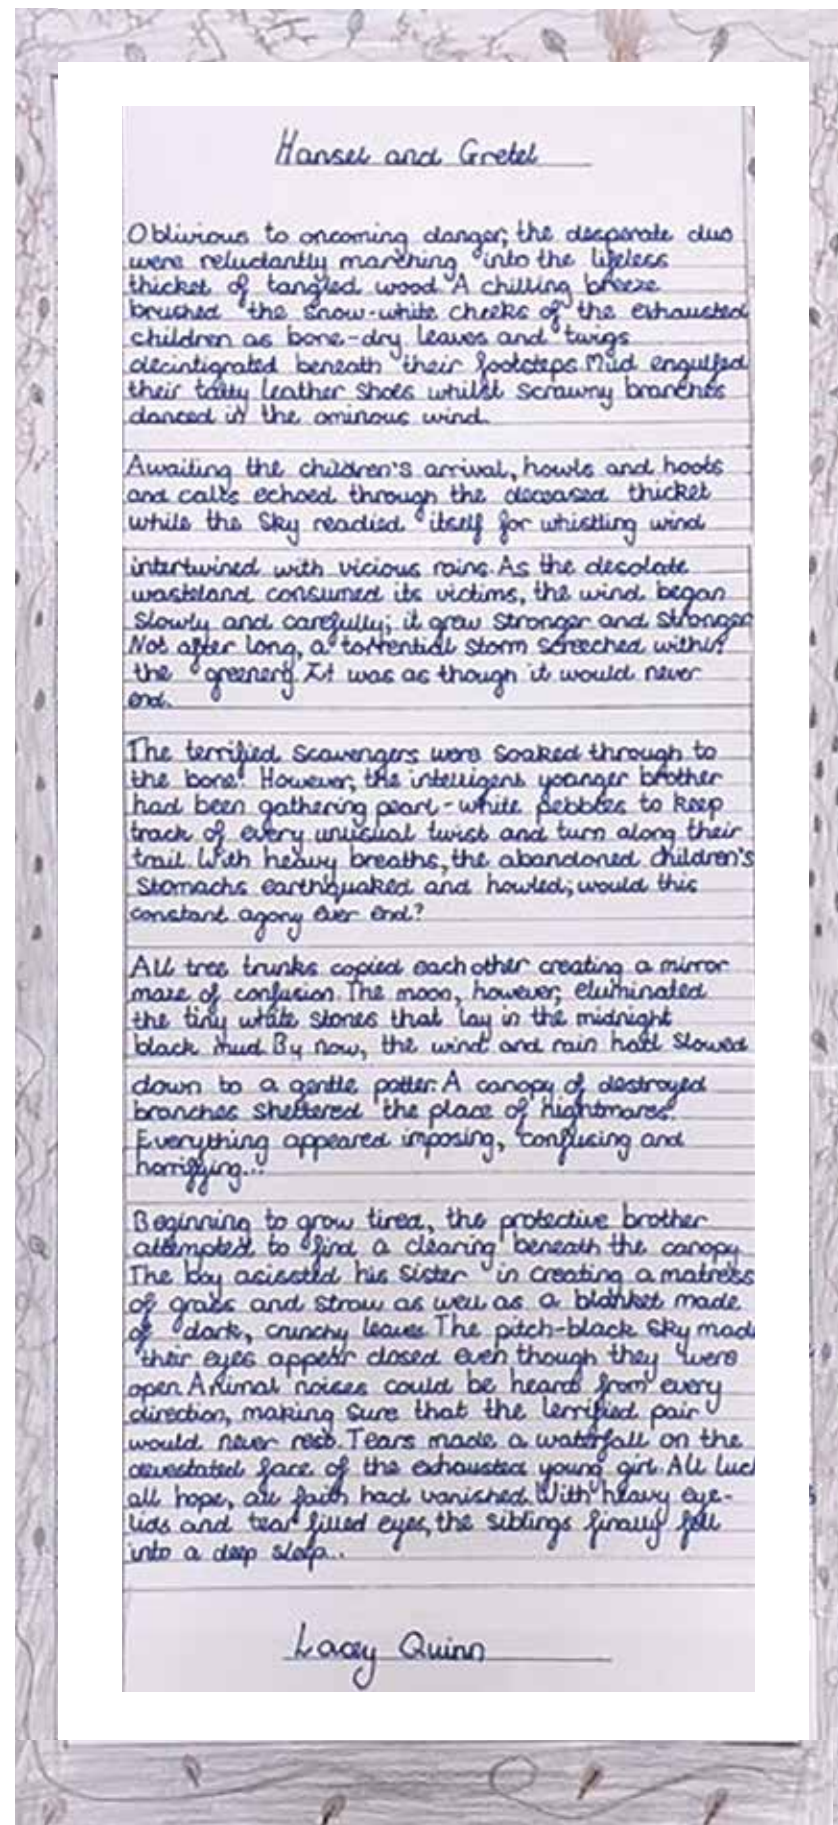 Hansel and Gretel
Oblivious to oncoming danger, the desperate duo
were reluctantly marching into the lifeless
thicket of tangled wood. A chilling breeze
brushed the snow-white cheeks of the exhausted
children as bone-dry leaves and twigs
decintigrated beneath their footsteps. Mud engulfed
their tatty leather shoes whilst scrawny branches
danced in the ominous wind.
Awaiting the children's arrival, howls and hoots
and calls echoed through the deceased thicket
while the sky readied itself for whistling wind
intertwined with vicious rains. As the desolate
wasteland consumed its victims, the wind began
slowly and carefully; it grew stronger and stronger
Not after long, a torrential storm screeched within
the greenery. It was as though it would never
end.
The terrified scavengers were soaked through to
the bone. However, the intelligent younger brother
had been gathering pearl-white pebbles to keep
track of every unusual twist and turn along their
trail. With heavy breaths, the abandoned children's
stomachs earthquaked and howled; would this
constant agony ever end?
All tree trunks copied each other creating a mirror
maze of confusion. The moon, however, eluminated
the tiny white stones that lay in the midnight
black mud. By now, the wind and rain had slowed
down to a gentle patter. A canopy of destroyed
branches sheltered the place of nightmares.
Everything appeared imposing, confusing and
horrifying...
Beginning to grow tired, the protective brother
attempted to find a clearing beneath the canopy
The boy asissted his sister in creating a matress
of grass and straw as well as a blanket made
of dark, crunchy leaves. The pitch-black sky made
their eyes appear closed even though they were
open. Animal noises could be heard from every
direction, making sure that the terrified pair
would never rest. Tears made a waterfall on the
devestated face of the exhausted young girl. All luck
all hope, all faith had vanished. With heavy eye-
lids and tear filled eyes, the siblings finally fell
into a deep sleep..
Lacey Quinn